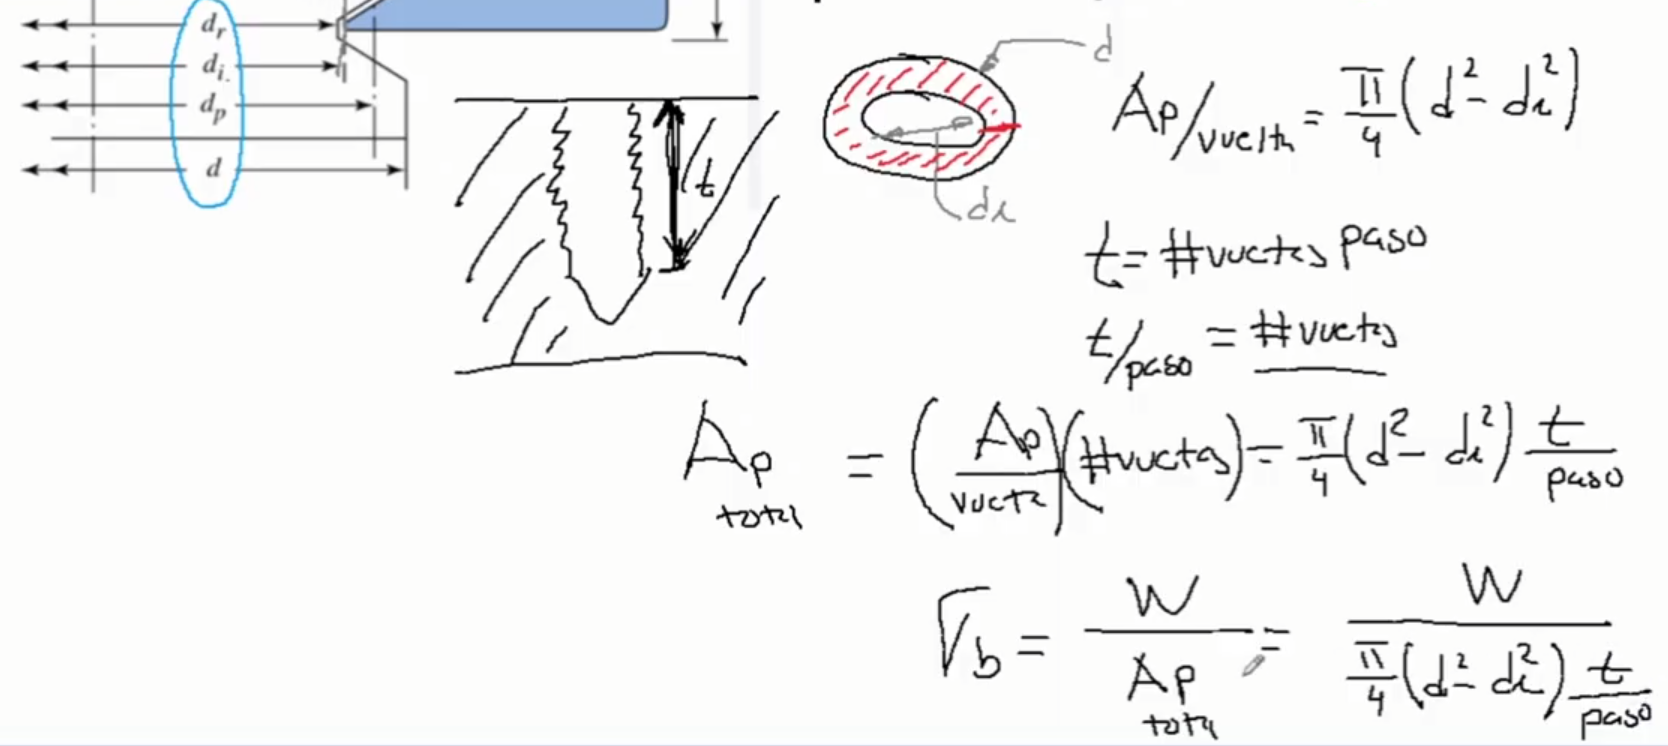 d_r
d_i
d_p
d
t
d
di
Ap/vuelta = π/4 (d² - di²)
t = #vueltas paso
t/paso = #vueltas
Ap total = (Ap/vuelta)(#vueltas) = π/4 (d² - di²) t/paso
σb = W/Ap total = W/(π/4 (d² - di²) t/paso)